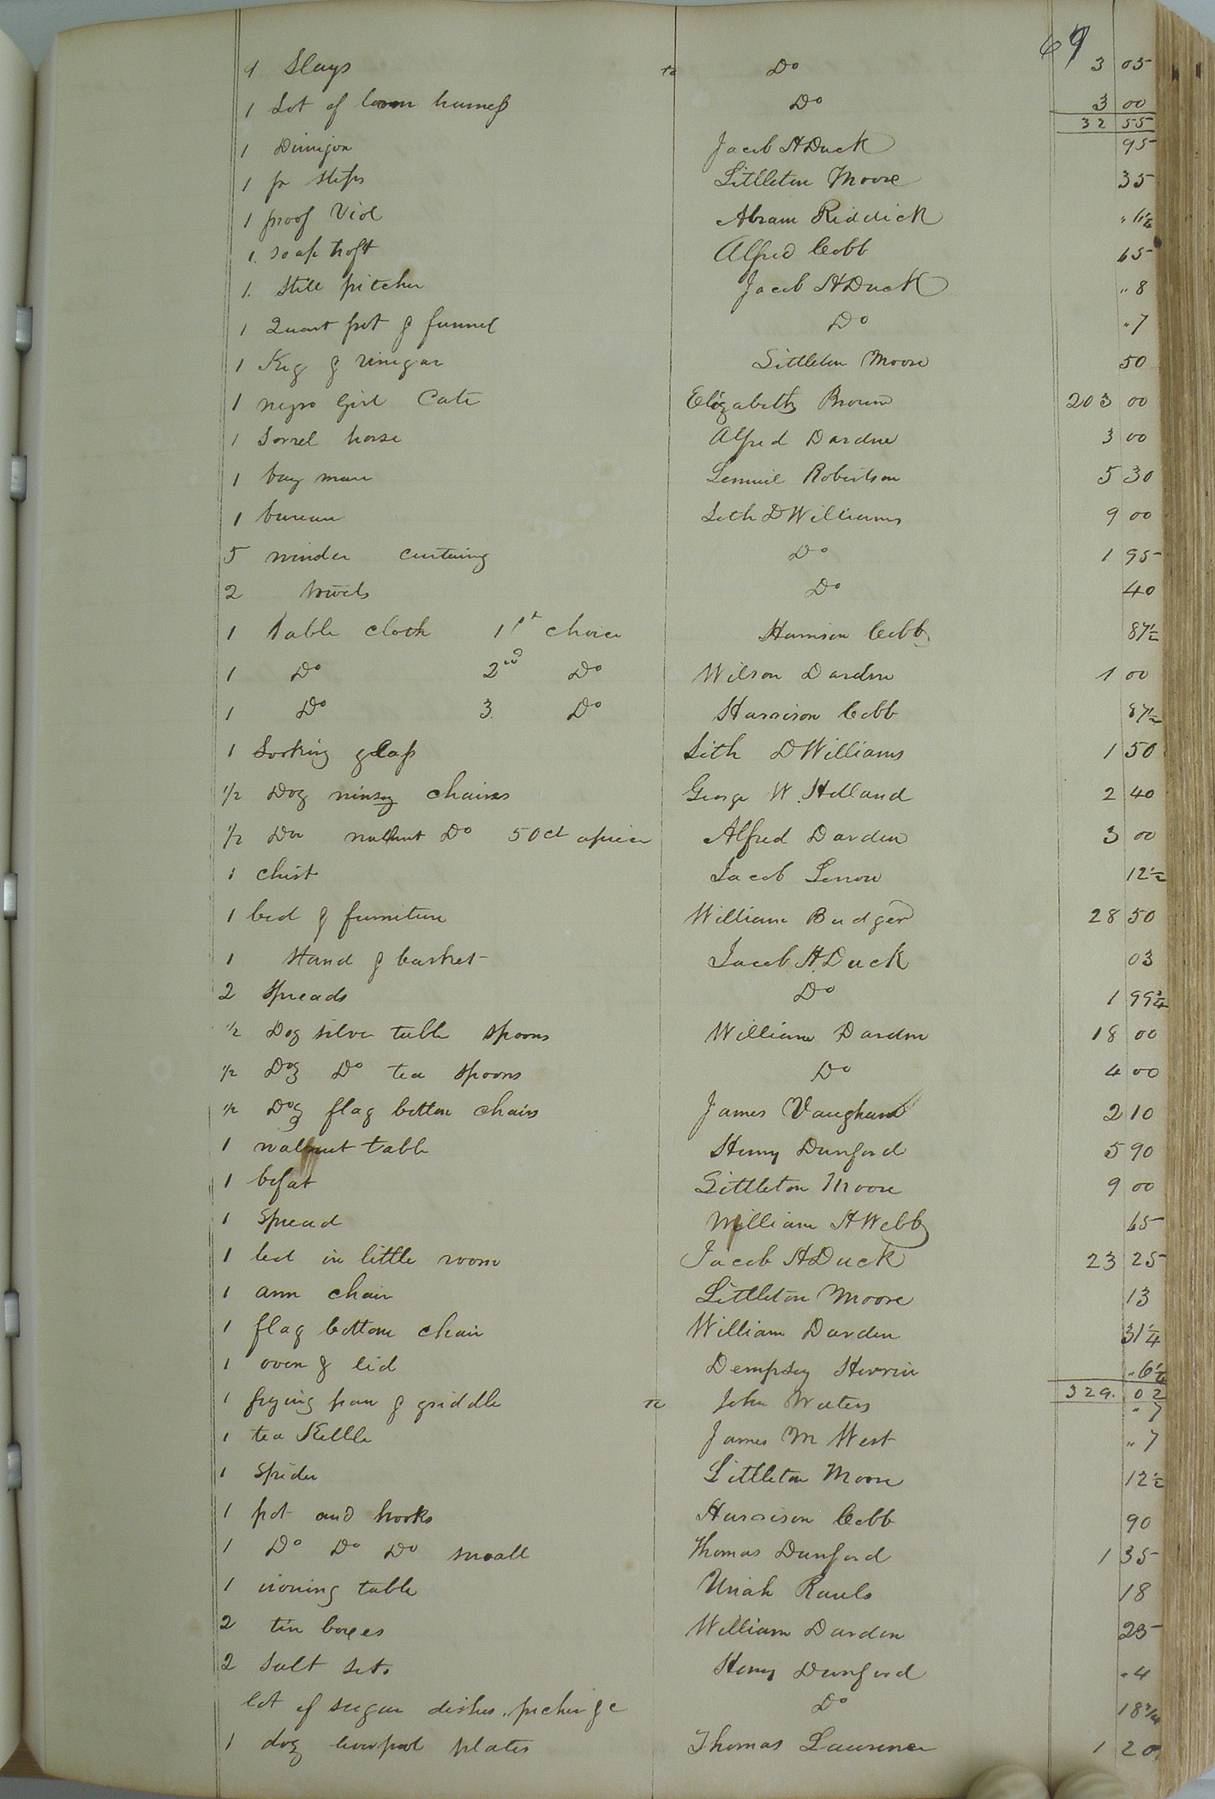 69
9 Slays to Do 3 05
1 Lot of loom harness Do 3 00
32 55
1 Dimijon Jacob H Duck 95
1 pr steps Littleton Moore 35
1 proof Viol Abram Riddick " 6¼
1 soap troft Alfred Cobb 65
1 Still pitcher Jacob H Duck " 8
1 Quart pot & funnel Do " 7
1 Keg & vinegar Littleton Moore 50
1 negro Girl Cate Elizabeth Brown 203 00
1 Sorrel horse Alfred Darden 3 00
1 bay mare Lemuel Robertson 5 30
1 bureau Seth D Williams 9 00
5 winder curtains Do 1 95
2 towels Do 40
1 table cloth 1st choice Harrison Cobb 87½
1 Do 2nd Do Wilson Darden 1 00
1 Do 3 Do Harrison Cobb 87½
1 Looking glass Seth D Williams 1 50
1/2 Doz winsey chaires George W. Holland 2 40
1/2 Doz walnut Do 50 ct apiece Alfred Darden 3 00
1 chist Jacob Lenow 12½
1 bed & furniture William Badger 28 50
1 Stand & basket Jacob H Duck 03
2 Spreads Do 1 99¾
1/2 Doz silver table spoons William Darden 18 00
1/2 Doz Do tea spoons Do 4 00
1/2 Doz flag bottom chairs James Vaughan 2 10
1 walnut table Henry Dunford 5 90
1 bofat Littleton Moore 9 00
1 Spread William H Webb 65
1 bed in little room Jacob H Duck 23 25
1 arm chair Littleton Moore 13
1 flag bottom chair William Darden 31¼
1 oven & lid Dempsey Herrin " 6¼
329. 02
1 frying pan & griddle to John Waters " 7
1 tea Kettle James M West " 7
1 Spider Littleton Moore 12½
1 pot and hooks Harrison Cobb 90
1 Do Do Do small Thomas Dunford 1 35
1 ironing table Uriah Rawls 18
2 tin boxes William Darden 25
2 Salt sets Henry Dunford " 4
lot of sugar dishes, picher &c Do 18¾
1 doz liverpool plates Thomas Lawrence 1 20